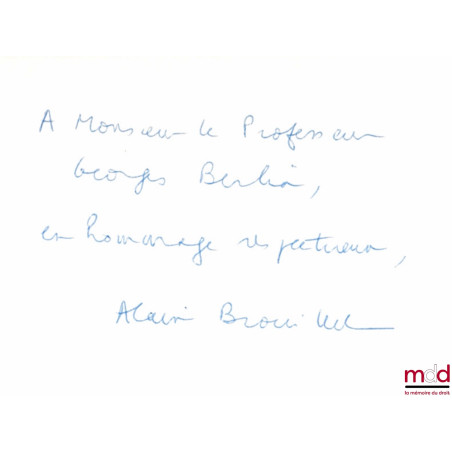 A Monsieur le Professeur
Georges Berlia,
en hommage respectueux,
Alain Brouillet
mdd
la mémoire du droit